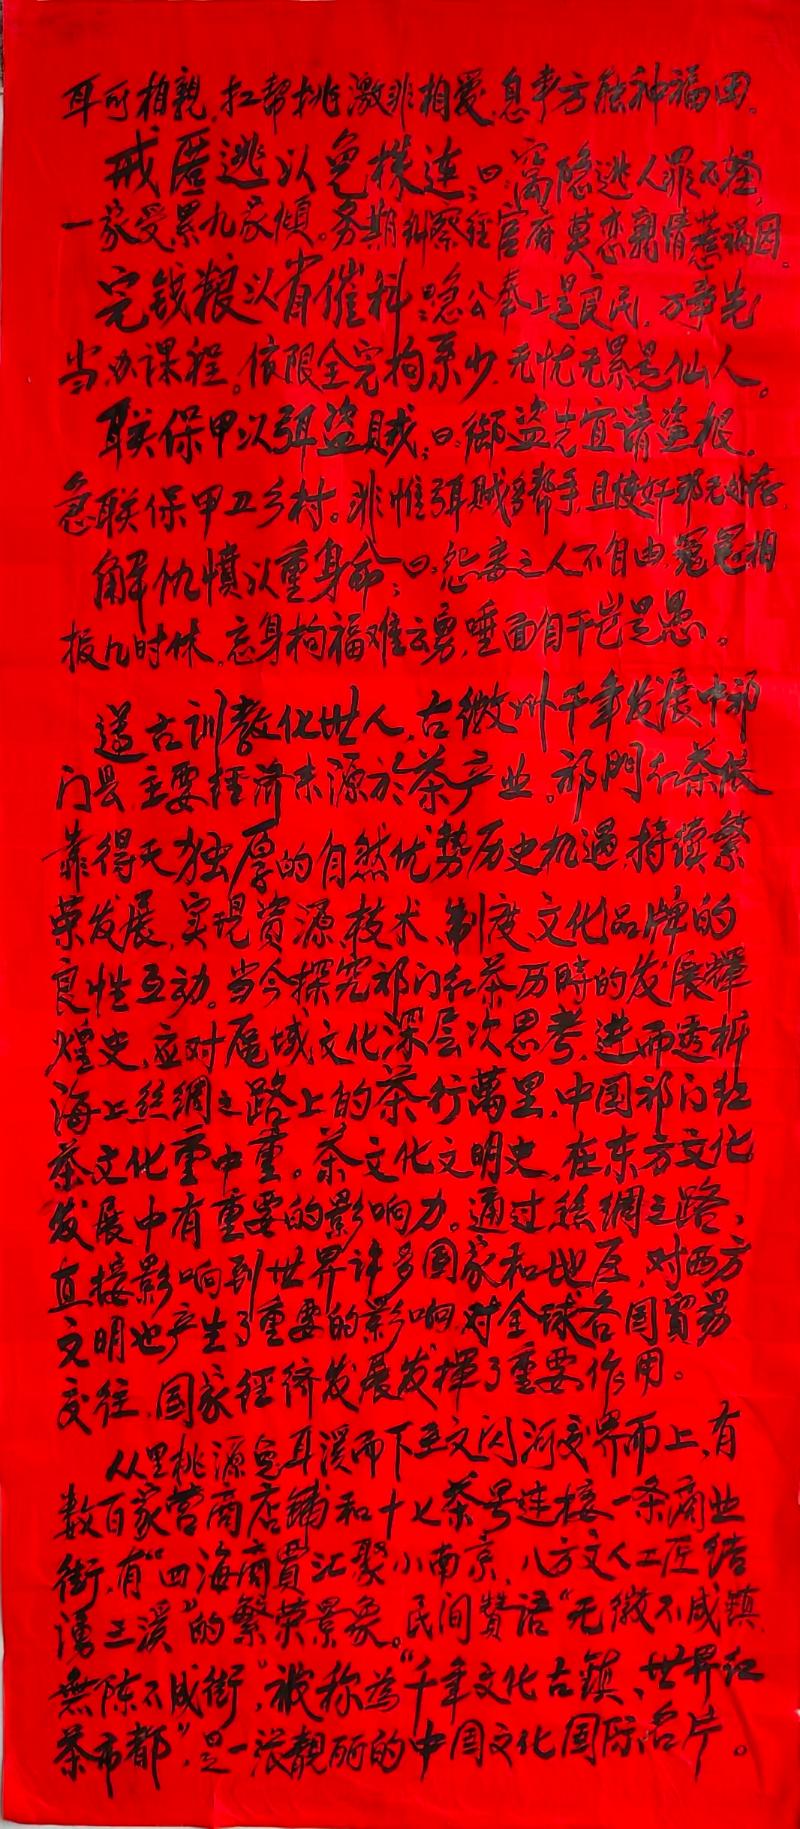 耳可相親，扛幇挑激非相爱，息事方能种福田。
戒匿逃以免株连；曰：窩隐逃人罪不轻，
一家受累九家傾。务期糾察經官府，莫恋親情惹祸因。
完钱粮以省催科；曰：急公奉上是良民，万事先
当办课程。依限全完拘系少，无忧无累是仙人。
联保甲以弭盗贼；曰：御盗先宜清盗根，
急联保甲卫乡村。非惟弭賊多幇手，且使奸邪无处存。
解仇憤以重身命；曰：怨毒之人不自由，冤冤相
报几时休。忘身拘福难云勇，唾面自干岂是愚。
遵古訓教化世人，古徽州千年发展中祁
门县，主要經濟来源於茶产业。祁門红茶依
靠得天独厚的自然优势历史机遇，持续繁
荣发展，实現资源、技术、制度、文化品牌的
良性互动。当今探究祁门红茶历時的发展輝
煌史，应对區域文化深层次思考，进而透析
海上丝绸之路上的茶行萬里，中国祁门红
茶文化重中重。茶文化文明史，在东方文化
发展中有重要的影响力。通过丝绸之路，
直接影响到世界许多国家和地区，对西方
文明也产生了重要的影响，对全球各国貿易
交往，国家经济发展发揮了重要作用。
从里桃源兔耳溪而下至文闪河交界而上，有
数百家营商店鋪和十七茶号连接一条商业
街，有“四海商賈汇聚小南京，八方文人工匠结
湧三溪”的繁荣景象。民间贊语“无徽不成鎮，
無陈不成街”，被称為“千年文化古鎮、世界红
茶市都”，是一张靓丽的中国文化国际名片。